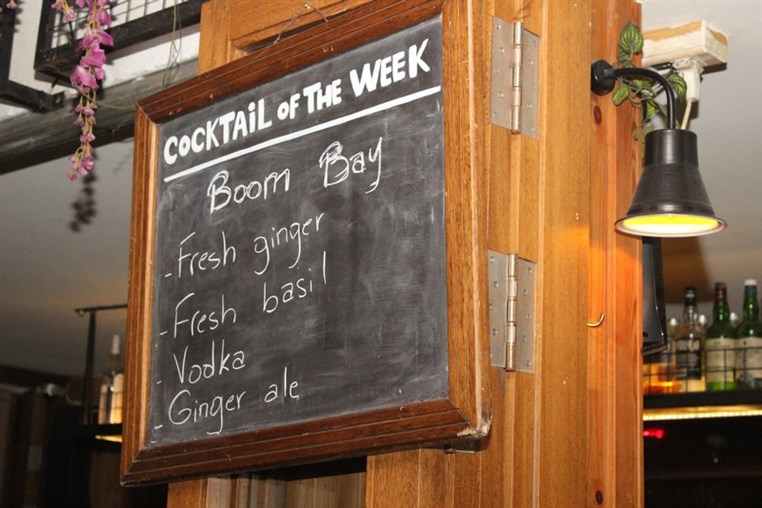 COCKTAIL OF THE WEEK
Boom Bay
- Fresh ginger
- Fresh basil
- Vodka
- Ginger ale